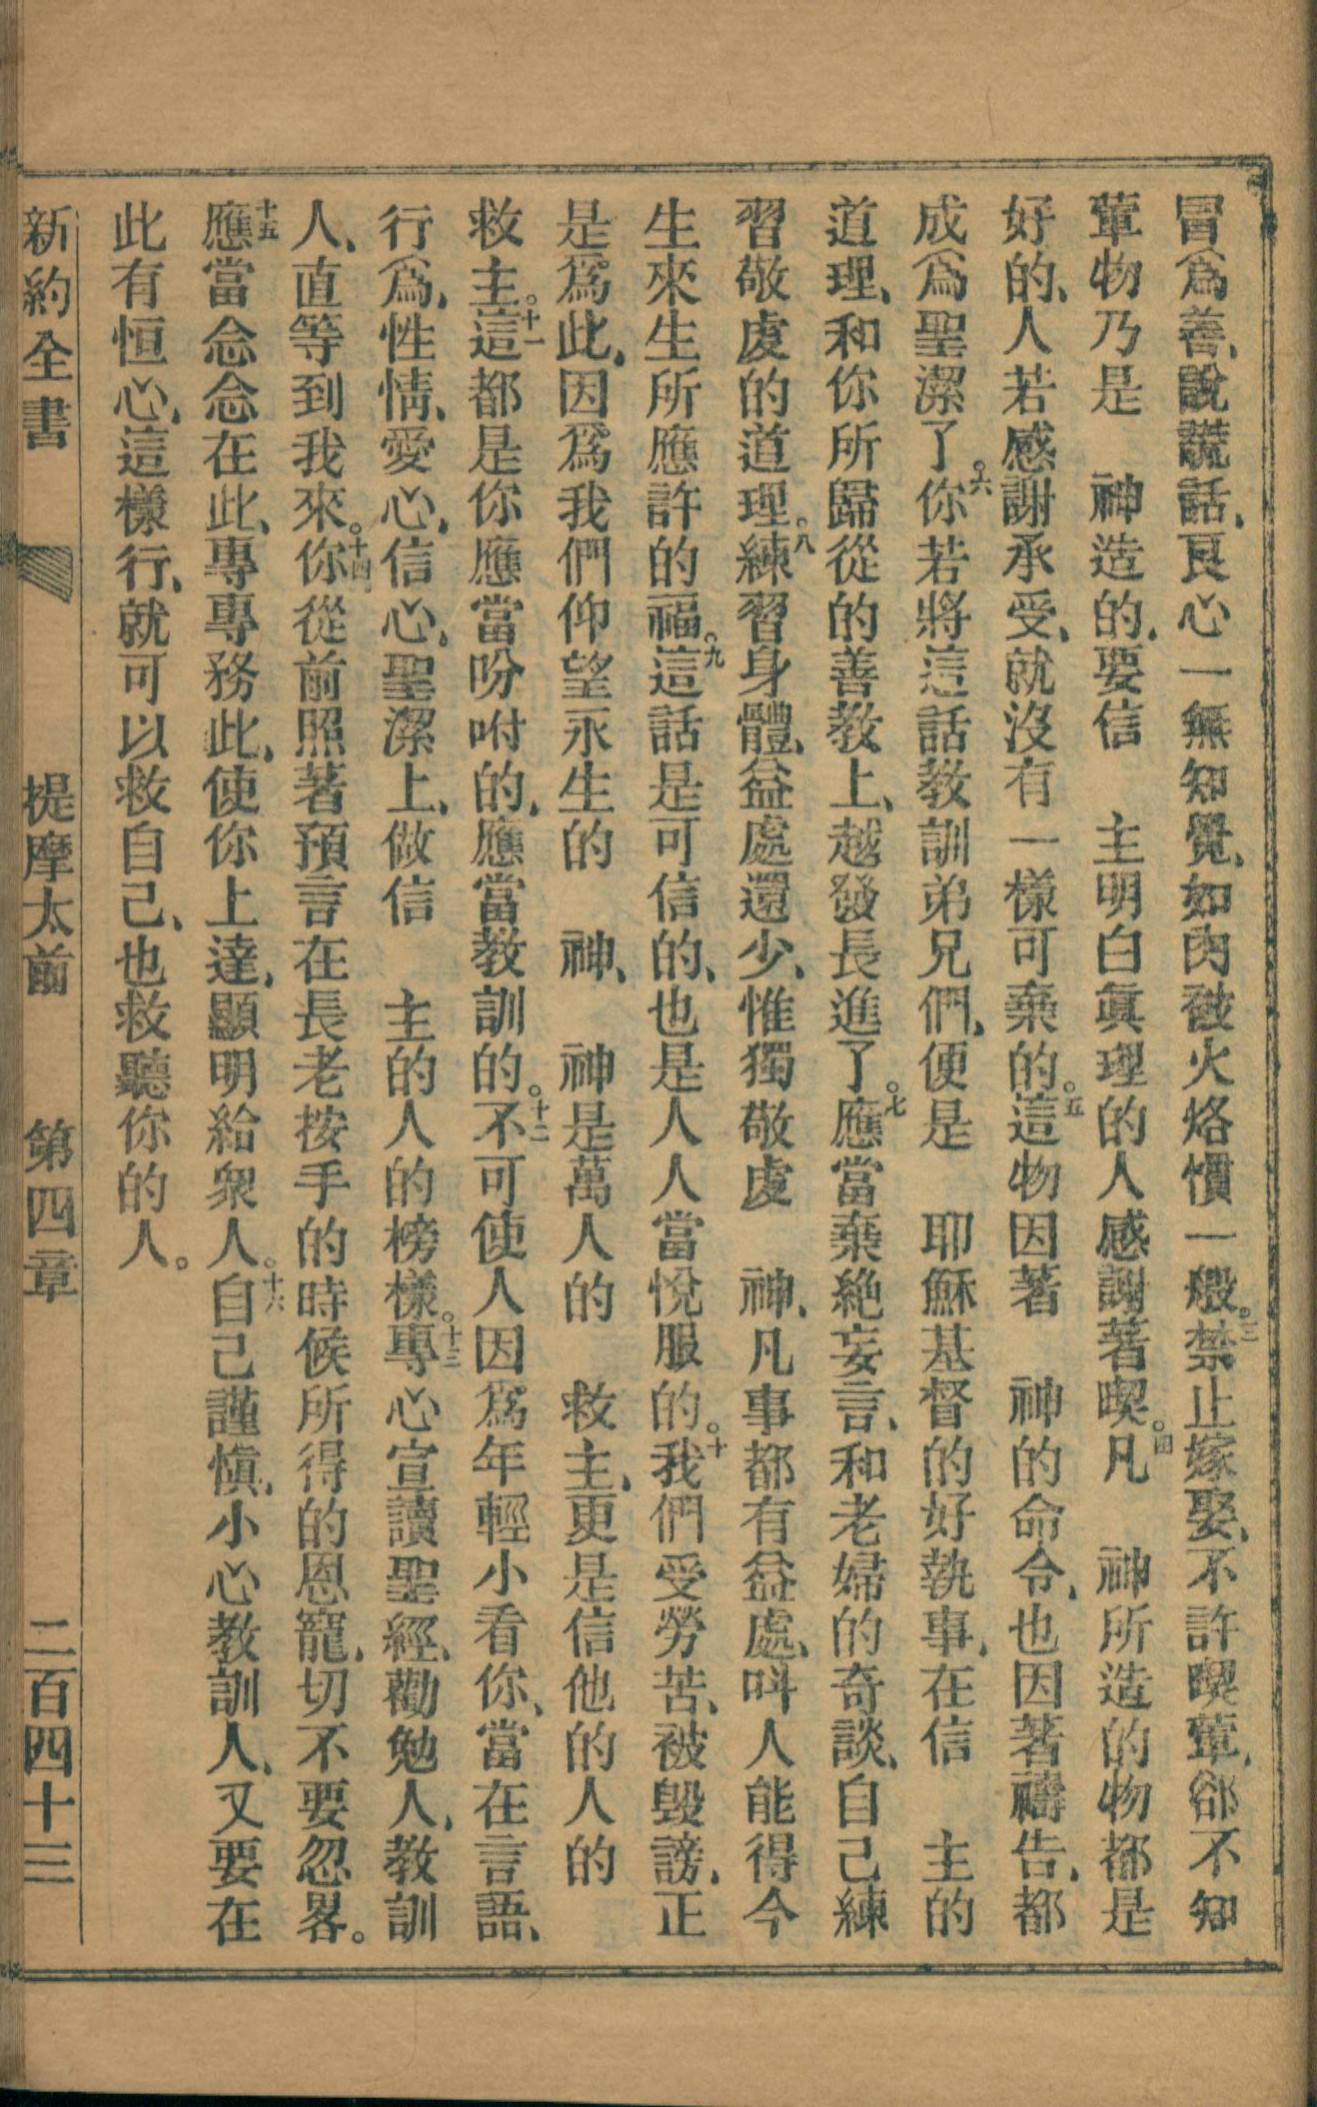 冒爲善、說謊話、良心一無知覺、如肉被火烙慣一般。三禁止嫁娶、不許喫葷、卻不知
葷物乃是　神造的、要信　主明白眞理的人感謝著喫。四凡　神所造的物都是
好的、人若感謝承受、就沒有一樣可棄的。五這物因著　神的命令、也因著禱告、都
成爲聖潔了。六你若將這話教訓弟兄們、便是　耶穌基督的好執事、在信　主的
道理、和你所歸從的善教上、越發長進了。七應當棄絶妄言、和老婦的奇談、自己練
習敬虔的道理。八練習身體、益處還少、惟獨敬虔　神、凡事都有益處、呌人能得今
生來生所應許的福。九這話是可信的、也是人人當悅服的。十我們受勞苦、被毀謗、正
是爲此、因爲我們仰望永生的　神、　神是萬人的　救主、更是信他的人的
救主。十一這都是你應當吩咐的、應當教訓的。十二不可使人因爲年輕小看你、當在言語、
行爲、性情、愛心、信心、聖潔上、做信　主的人的榜樣。十三專心宣讀聖經、勸勉人、教訓
人、直等到我來。十四你從前照著預言在長老按手的時候所得的恩寵、切不要忽畧。
十五應當念念在此、專專務此、使你上達、顯明給衆人。十六自己謹愼、小心教訓人、又要在
此有恒心、這樣行、就可以救自己、也救聽你的人。
新約全書　提摩太前　第四章　二百四十三